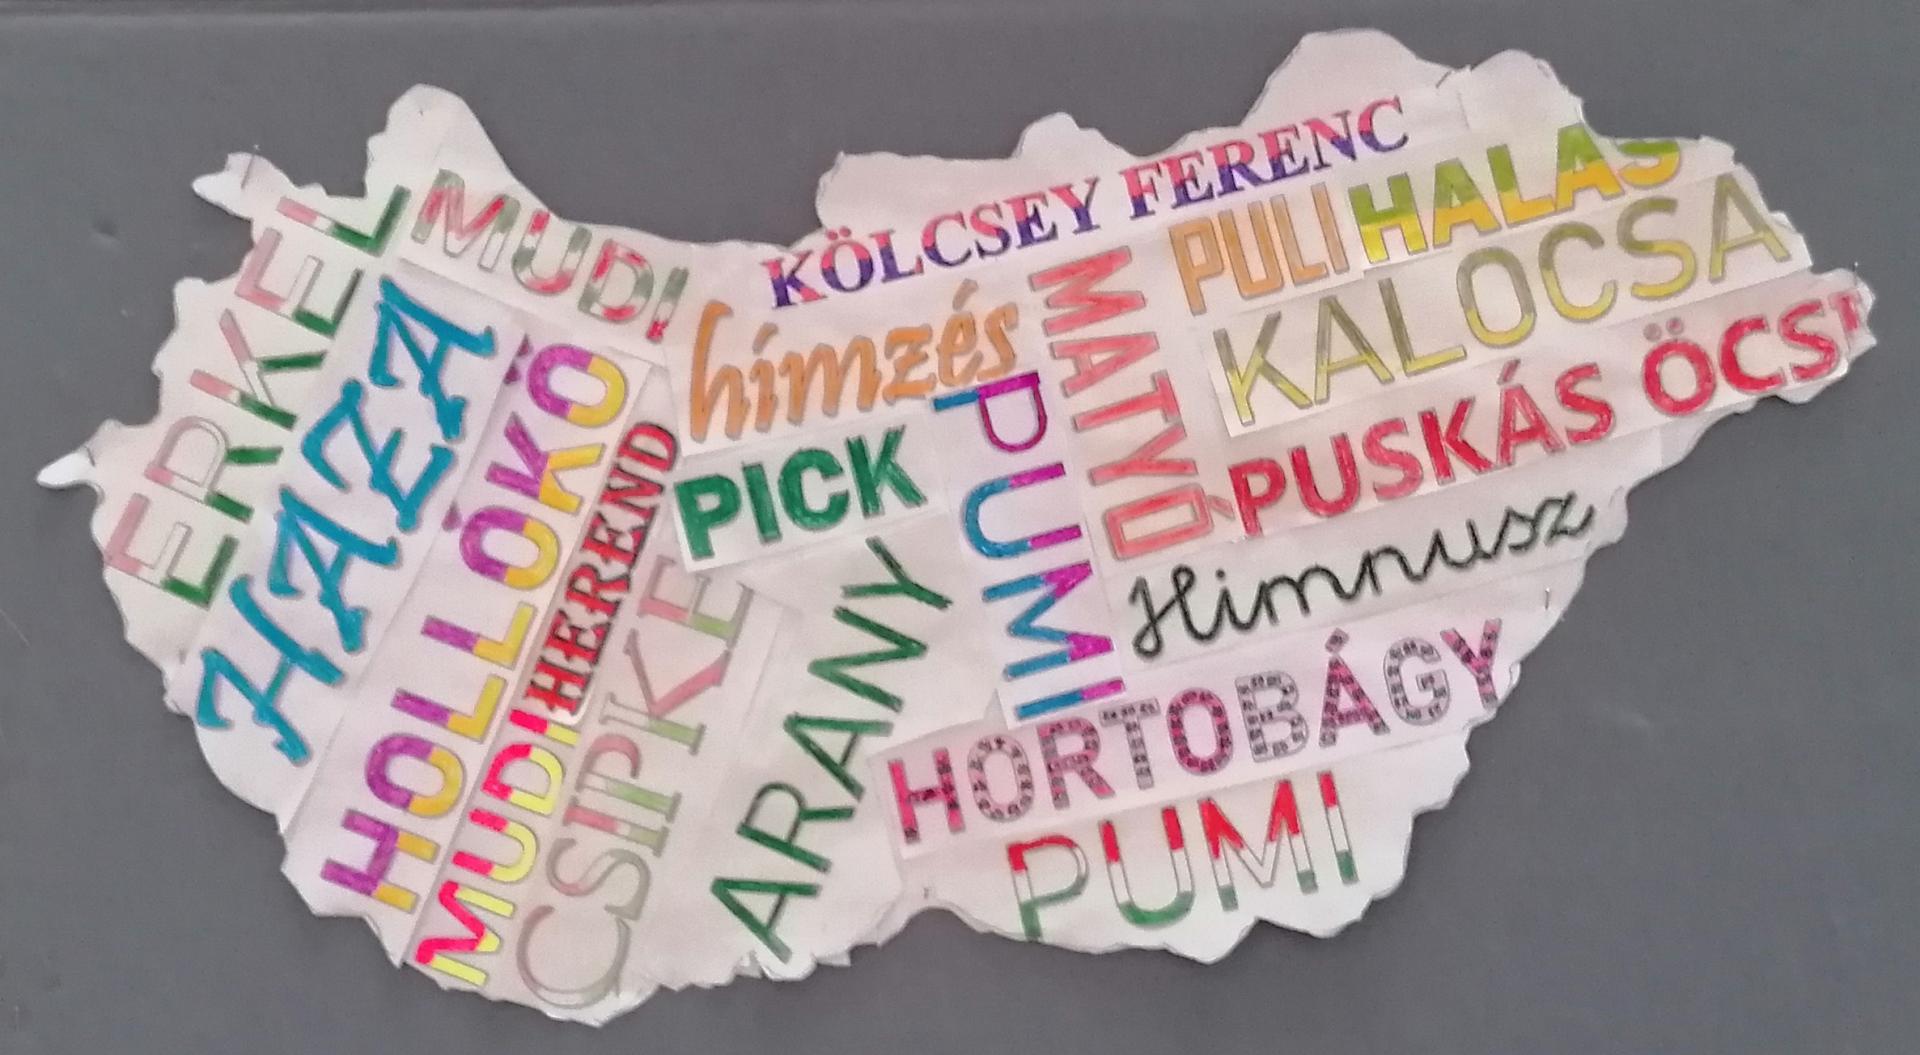 ERKEL
MUDI
HAZA
HOLLÓKŐ
HEREND
MUDI
CSIPKE
KÖLCSEY FERENC
hímzés
PICK
ARANY
PUMI
MATYÓ
PULI
HALAS
KALOCSA
PUSKÁS ÖCSI
Himnusz
HORTOBÁGY
PUMI